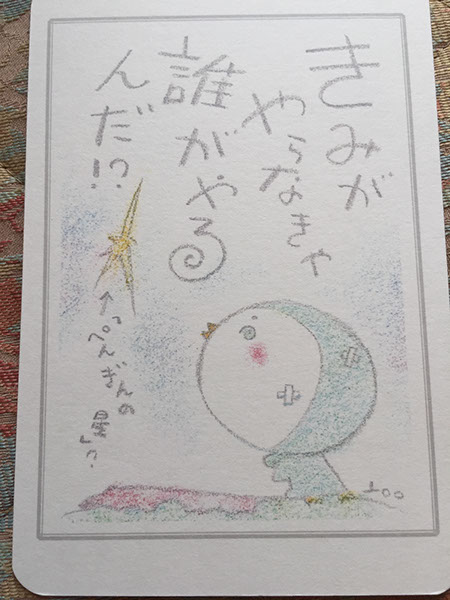 きみが
やらなきゃ
誰がやる
んだ!?
↑
「ぺんぎんの
星」?